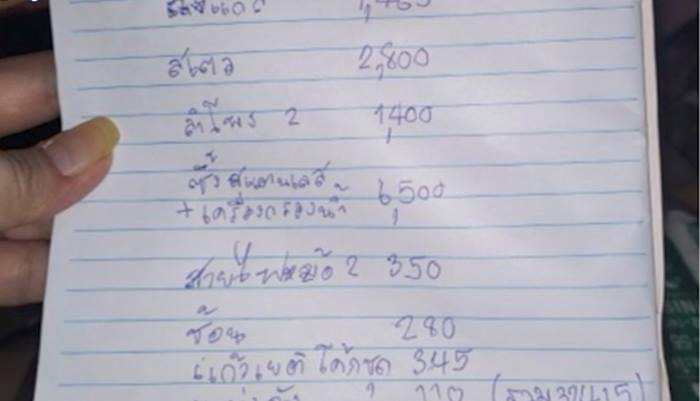 1,465
สเตว 2,800
ลำโพง 2 1,400
ซิ้งสแตนเลส
+ เครื่องกรองน้ำ 6,500
สายไฟหม้อ 2 350
ช้อน 280
แก้วเยติ โค้กชุด 345
110 (รวม 32,415)